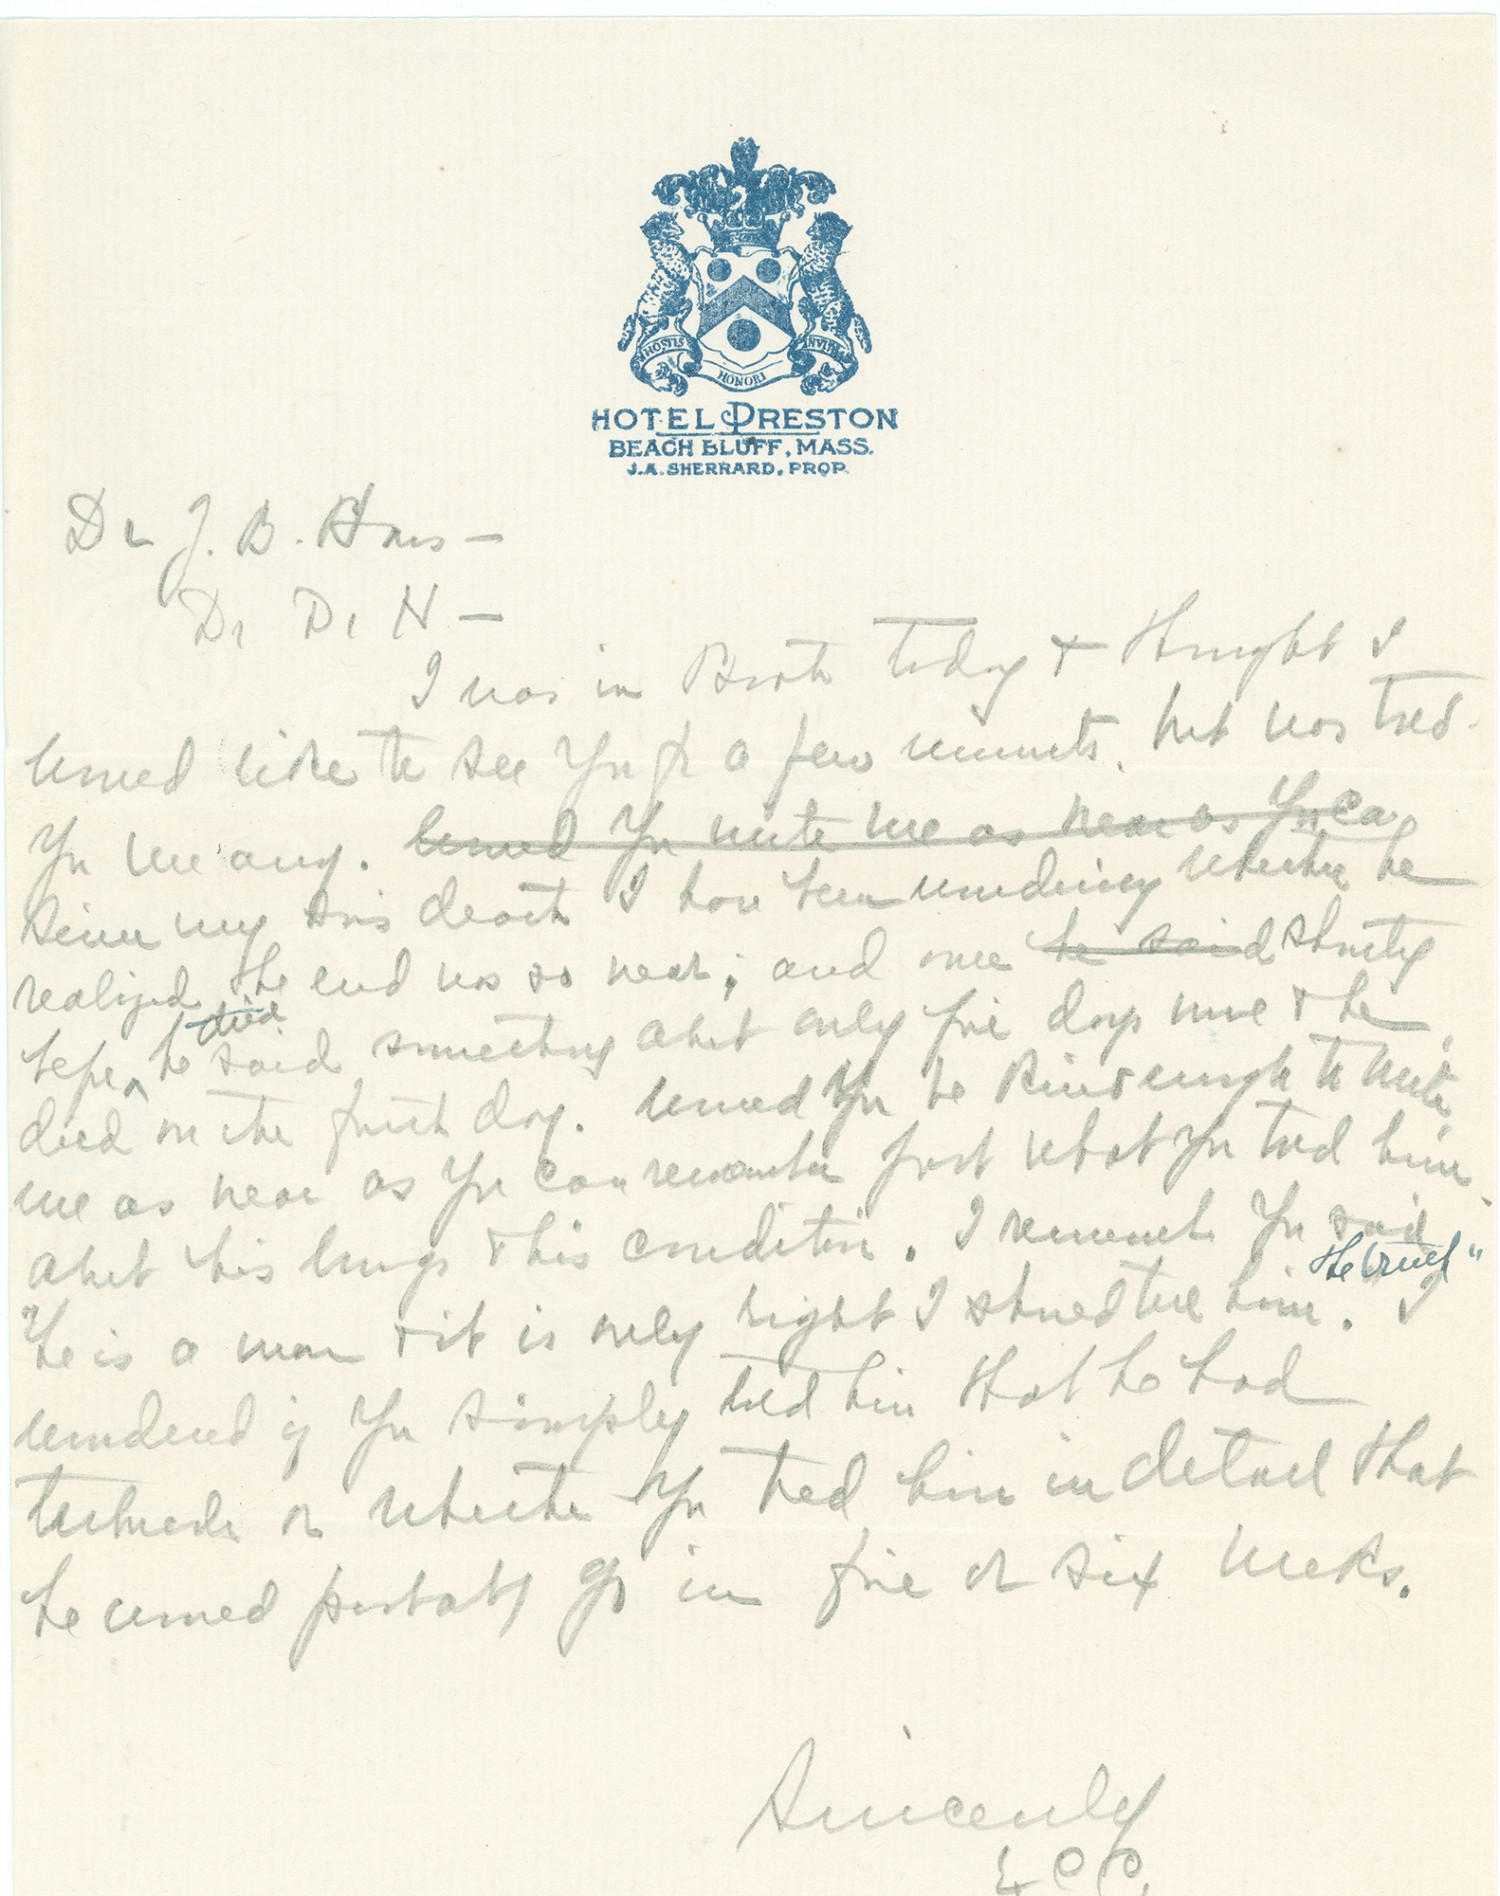 HOSTIS
HONORI
INVIDIA
HOTEL PRESTON
BEACH BLUFF, MASS.
J.A. SHERRARD, PROP.
Dr J. B. Haws —
Dr Dr H —
I was in Boston today & thought I
would like to see you for a few minutes. but was told
you were away. would you write me as near as you can
Since my son's death I have been wondering whether he
realized the end was so near; and once he said shortly
before he died said something about only five days more & he
died on the fifth day. would you be kind enough to write
me as near as you can remember just what you told him
about his lungs & his condition. I remember you said
"he is a man & it is only right I should tell him. the truth" I
wondered if you simply told him that he had
tuberculosis or whether you told him in detail that
he would probably go in five or six weeks.
Sincerely